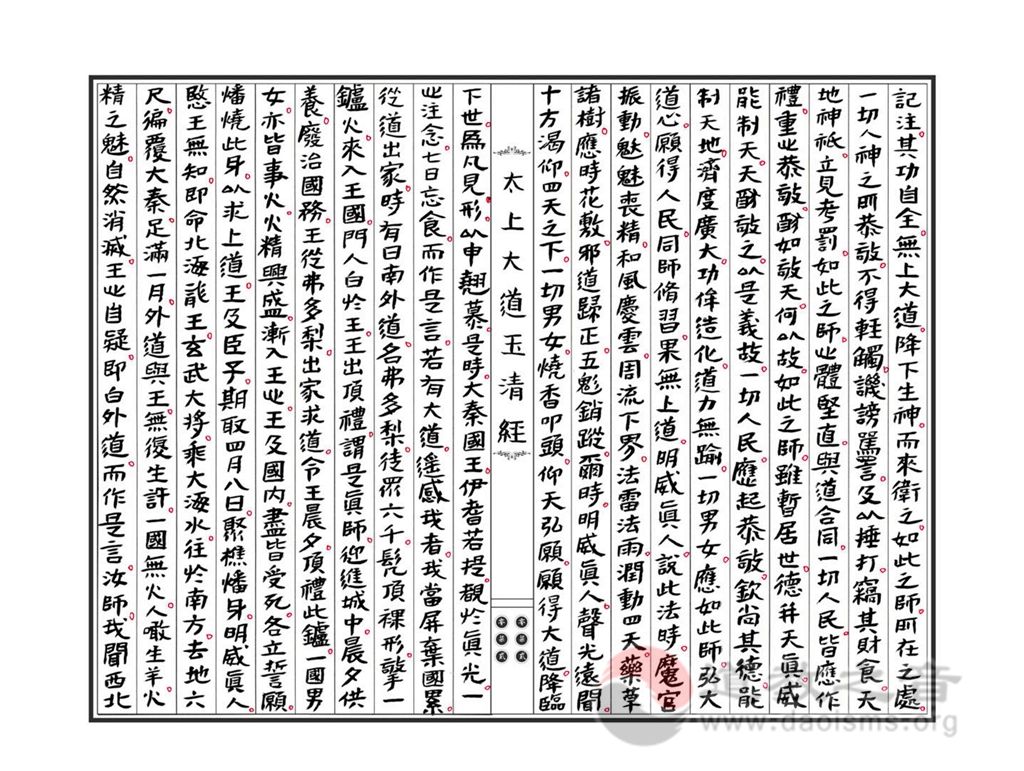 記注其功自全無上大道降下生神而來衛之如此之師所在之處
一切人神之所恭敬不得輕觸譏謗罵詈及以捶打竊其財食天
地神祇立見考罰如此之師心體堅直與道合同一切人民皆應作
禮重心恭敬酧如敬天何以故如此之師雖暫居世德并天真威
能制天天酧敬之以是義故一切人民應起恭敬欽尚其德能
制天地濟度廣大功侔造化道力無踰一切男女應如此師弘大
道心願得人民同師脩習果無上道明威真人說此法時魔宮
振動魃魅喪精和風慶雲周流下界法雷法雨潤動四天藥草
諸樹應時花敷邪道歸正五魁銷蹤爾時明威真人聲光遠聞
十方渴仰四天之下一切男女燒香叩頭仰天弘願願得大道降臨
太上大道玉清經
下世為凡見形以申翹慕是時大秦國王伊耆若提觀於真光一
心注念七日忘食而作是言若有大道遙感我者我當屏棄國累
從道出家時有日南外道名弗多梨徒眾六千髡頂裸形擎一
鑪火來入王國門人白於王王出頂禮謂是真師迎進城中晨夕供
養廢治國務王從弗多梨出家求道令王晨夕頂禮此鑪一國男
女亦皆事火火精興盛漸入王心王及國內盡皆受死各立誓願
燔燒此身以求上道王及臣子期取四月八日聚樵燔身明威真人
愍王無知即命北海龍王玄武大將乘大海水往於南方去地六
尺徧覆大秦足滿一月外道與王無復生許一國無火人噉生羊火
精之魅自然消滅王心自疑即白外道而作是言汝師我聞西北
道教之音
www.daoisms.org